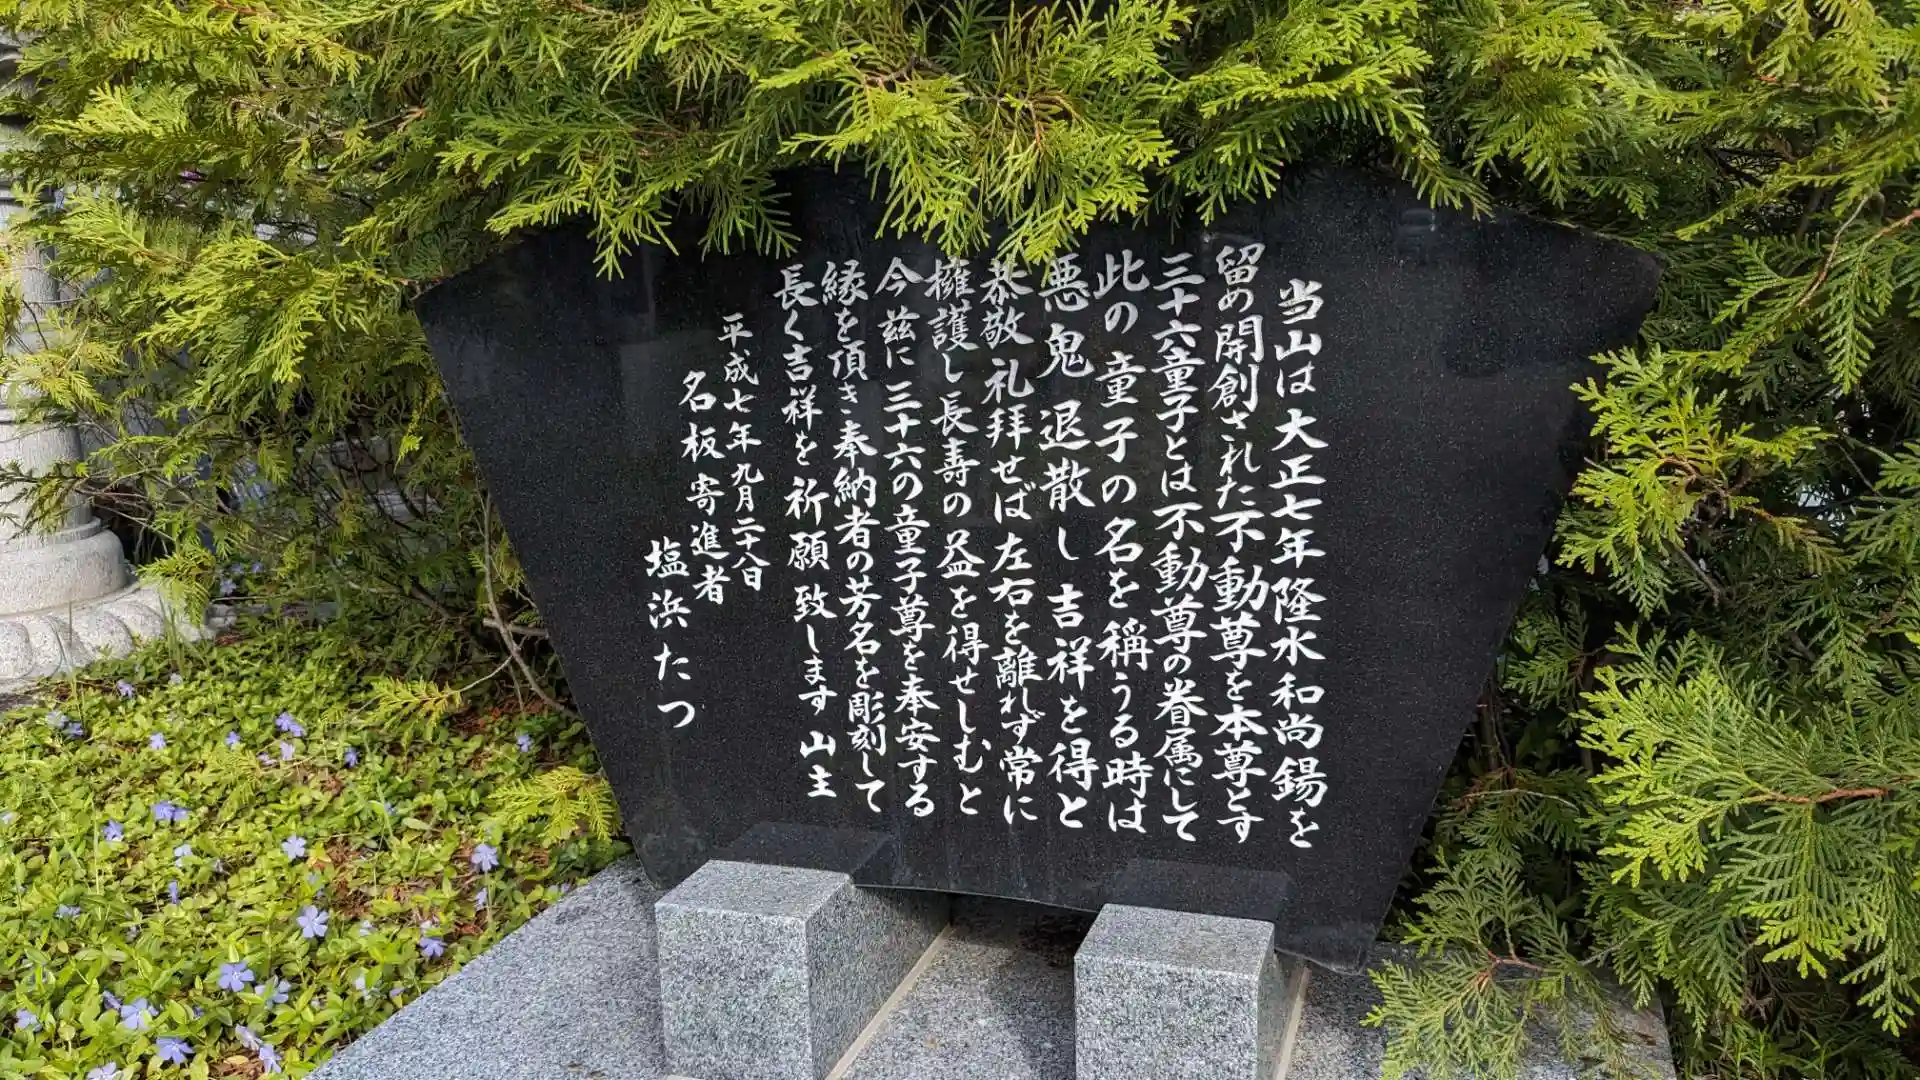 当山は大正七年隆水和尚錫を
留め開創された不動尊を本尊とす
三十六童子とは不動尊の眷属にして
此の童子の名を稱うる時は
悪鬼退散し吉祥を得と
恭敬礼拝せば左右を離れず常に
擁護し長寿の益を得せしむと
今茲に三十六の童子尊を奉安する
縁を頂き奉納者の芳名を彫刻して
長く吉祥を祈願致します 山主
平成七年九月二十八日
名板寄進者
塩浜たつ